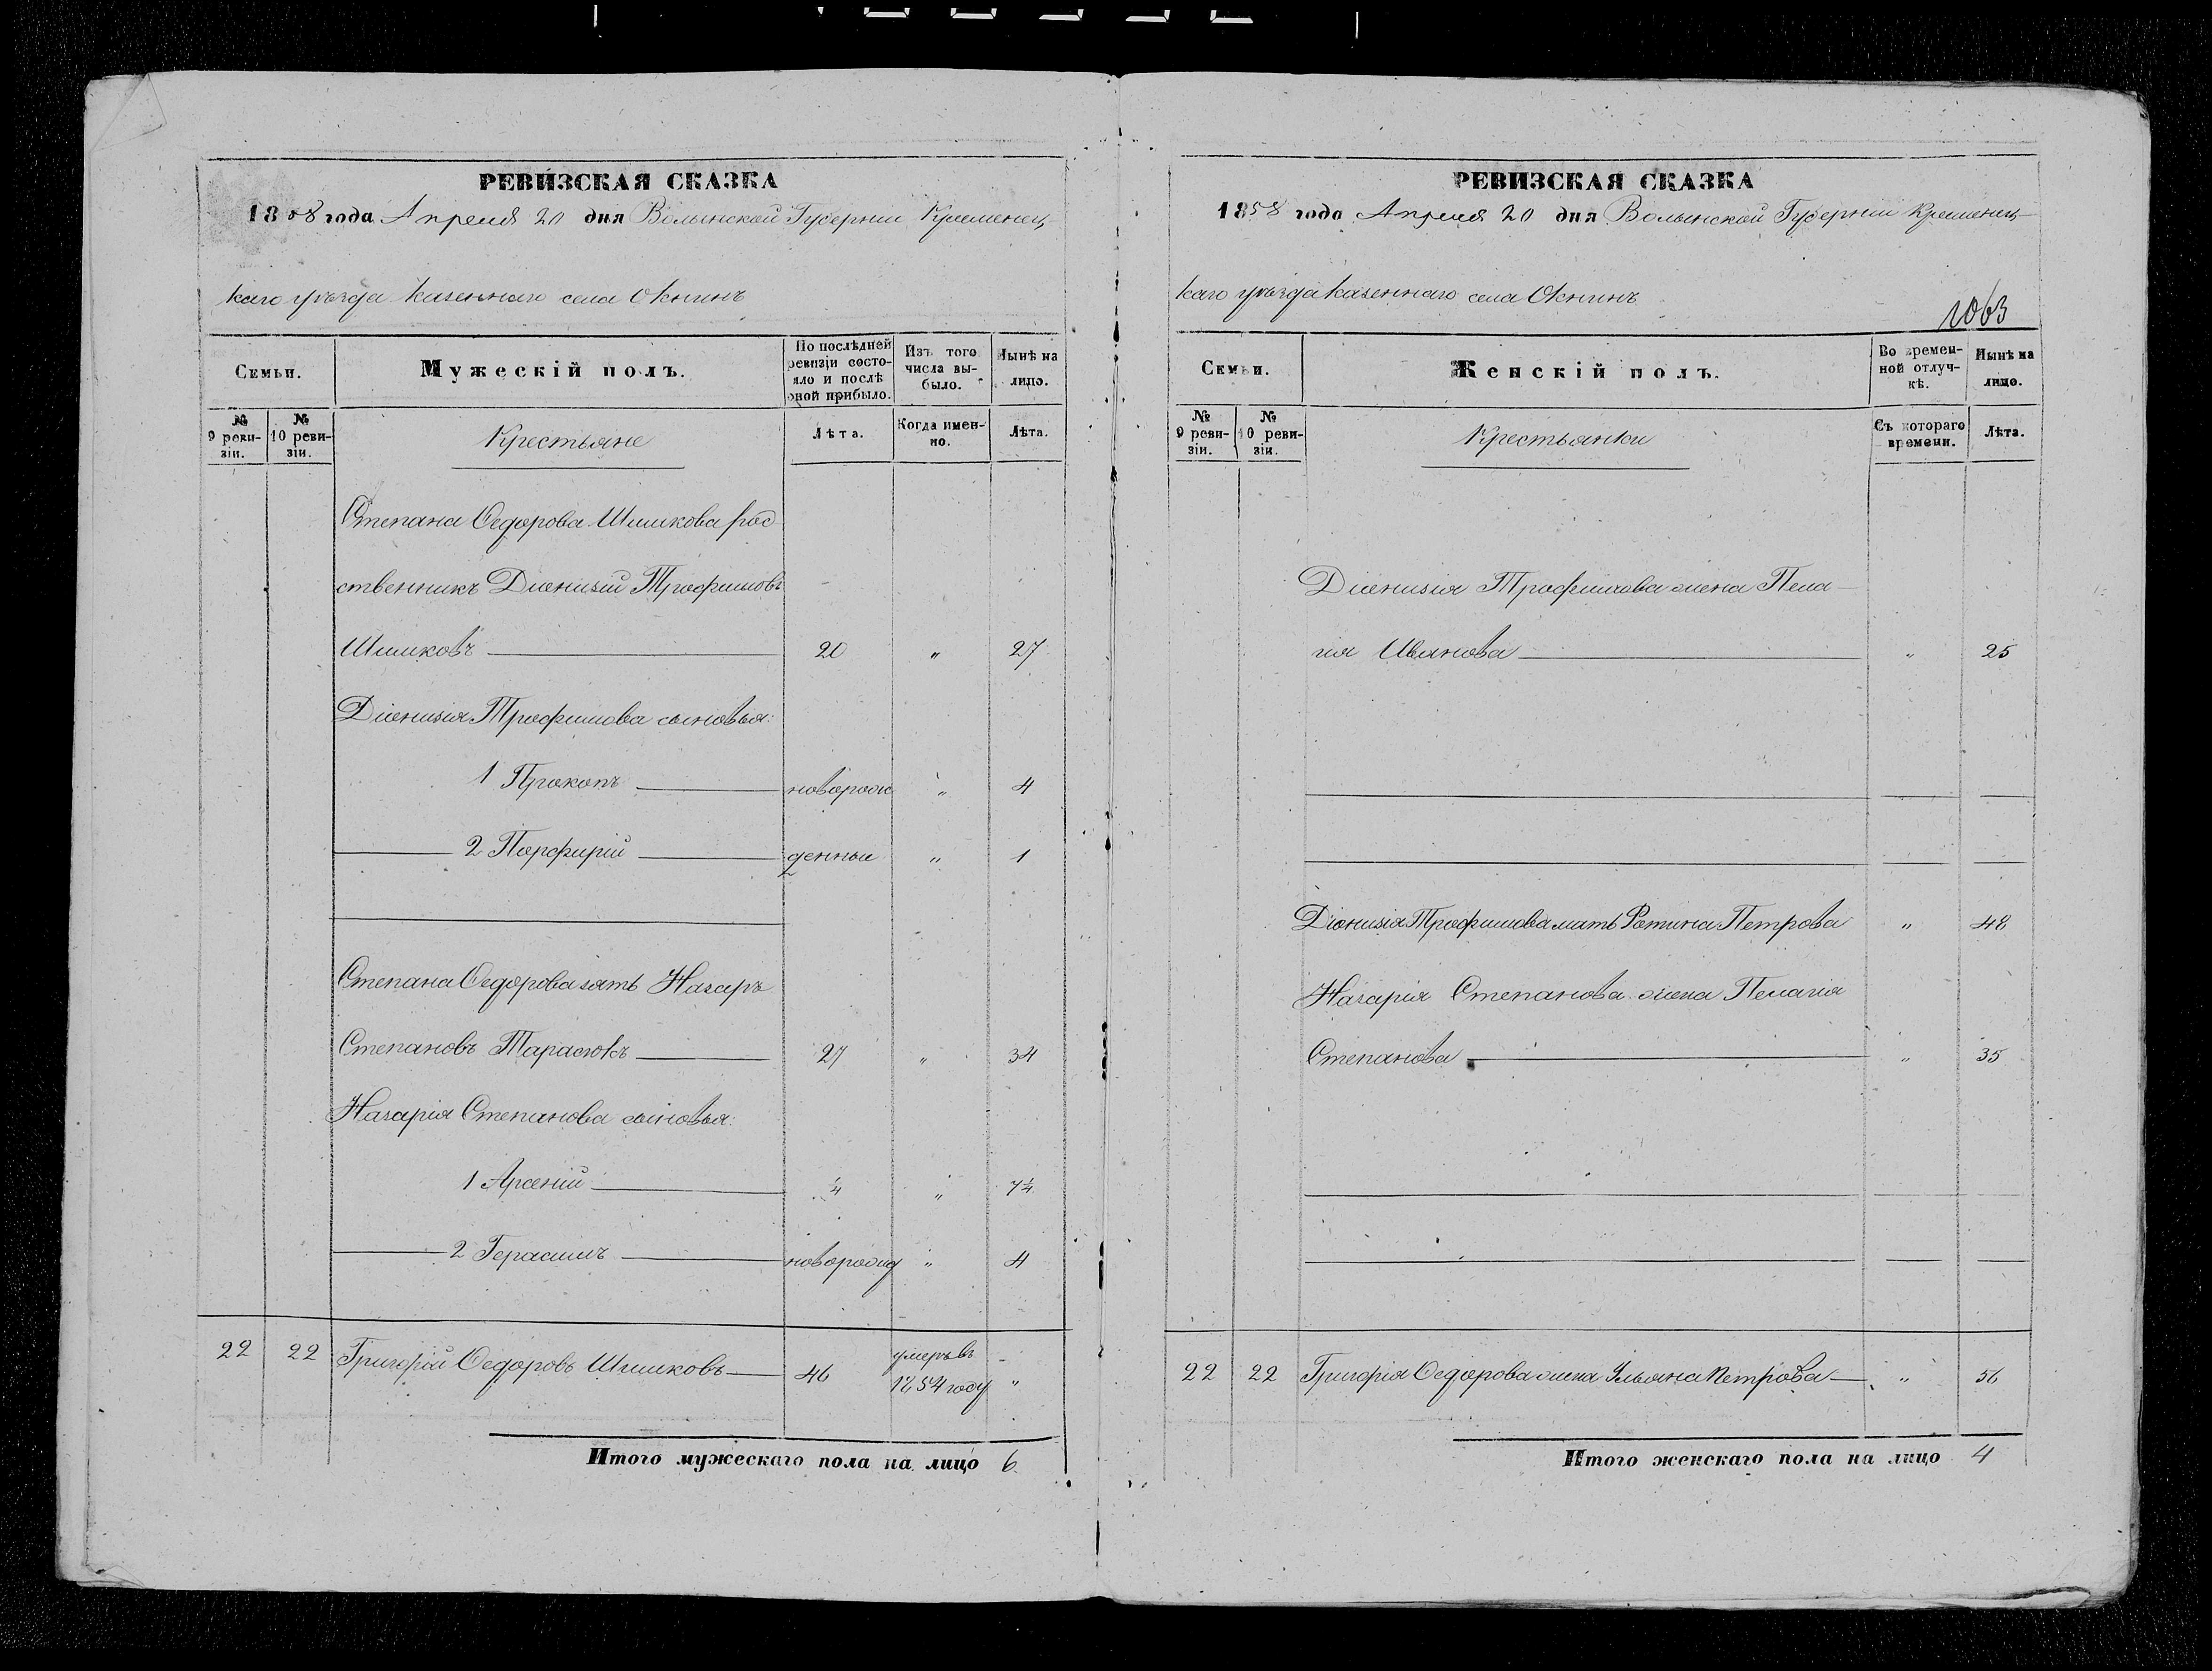 РЕВИЗСКАЯ СКАЗКА
1858 года Апреля 20 дня Волынской Губернии Кременец-
каго уѣзда казеннаго села Окнинъ
Семьи.
Мужескій полъ.
По послѣдней ревизіи состояло и послѣ оной прибыло.
Изъ того числа выбыло.
Нынѣ на лицо.
№ 9 ревизіи.
№ 10 ревизіи.
Крестьяне
Лѣта.
Когда именно.
Лѣта.
Степана Ѳедорова Шишкова род
ственникъ Діонизій Трофимовъ
Шишковъ 20 " 27
Діонизія Трофимова сыновья:
1 Прокопъ новорож " 4
2 Порфирій денные " 1
Степана Ѳедорова зять Назаръ
Степановъ Тарасюкъ 27 " 34
Назарія Степанова сыновья:
1 Арсеній ¼ " 7¼
2 Герасимъ новорожд " 4
22 22 Григорій Ѳедоровъ Шишковъ 46 умеръ въ 1854 году "
Итого мужескаго пола на лицо 6
РЕВИЗСКАЯ СКАЗКА
1858 года Апреля 20 дня Волынской Губерніи Кременец-
каго уѣзда казеннаго села Окнинъ
1063
Семьи.
Женскій полъ.
Во временной отлучкѣ.
Нынѣ на лицо.
№ 9 ревизіи.
№ 10 ревизіи.
Крестьянки
Съ котораго времени.
Лѣта.
Діонизія Трофимова жена Пела-
гія Иванова " 25
Діонизія Трофимова мать Петрова " 48
Назарія Степанова жена Пелагія
Степанова " 35
22 22 Григорія Ѳедорова жена Ульяна Петрова " 56
Итого женскаго пола на лицо 4